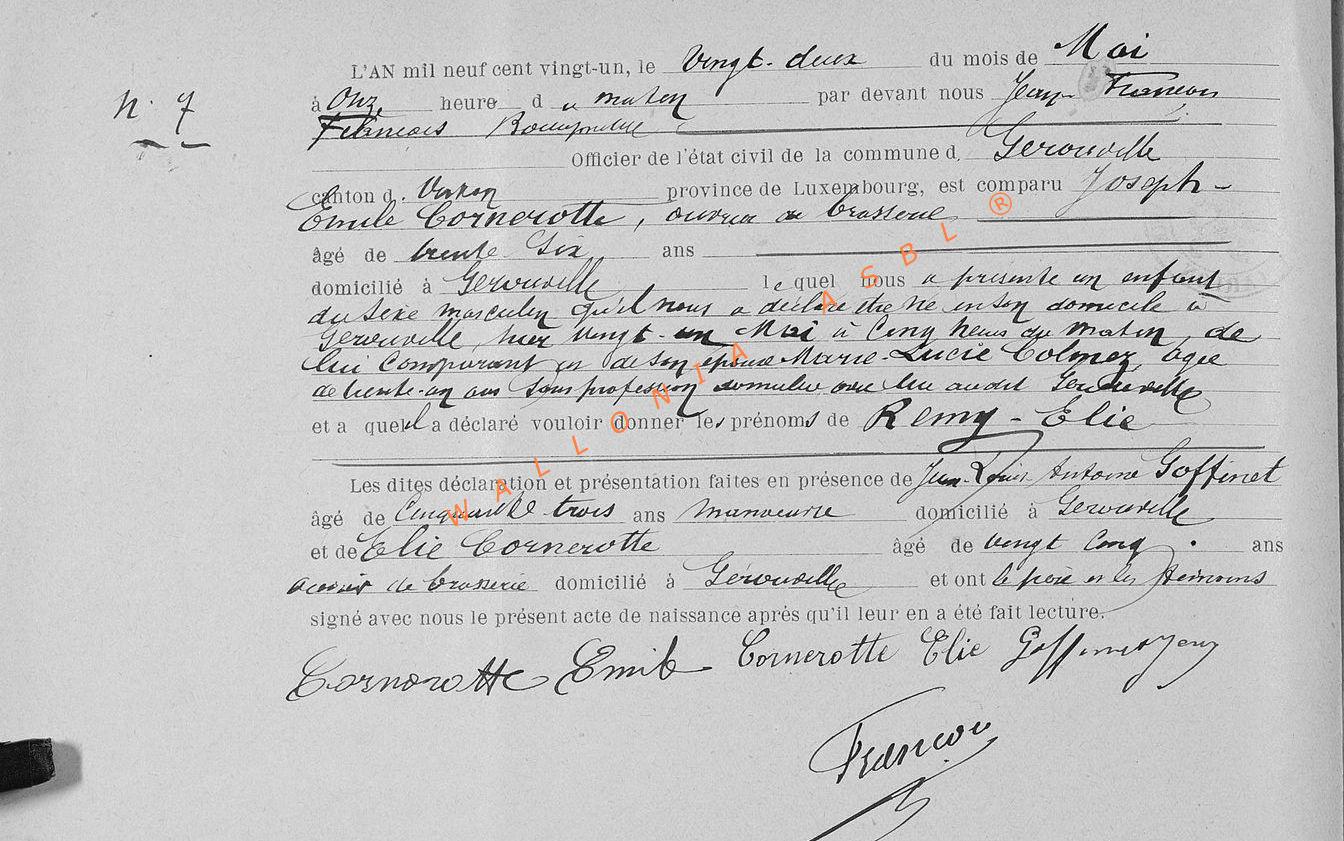 N. 7
L'AN mil neuf cent vingt-un, le vingt-deux du mois de Mai
à Onze heure d u matin par devant nous Jean François
François Bourgmestre
Officier de l'état civil de la commune d. Gerouville
canton d. Virton province de Luxembourg, est comparu Joseph-
Emile Cornerotte, ouvrier de brasserie
âgé de trente six ans
domicilié à Gerouville lequel nous a présenté un enfant
du sexe masculin qu'il nous a déclaré être né en son domicile à
Gerouville, hier vingt-un Mai à Cinq heures du matin, de
lui Comparant et de son épouse Marie-Lucie Colmez, âgée
de trente-un ans sans profession domiciliée avec lui audit Gerouville
et a quel il a déclaré vouloir donner les prénoms de Remy-Elie
Les dites déclaration et présentation faites en présence de Jean-Louis-Antoine Goffinet
âgé de Cinquante trois ans manoeuvre domicilié à Gerouville
et de Elie Cornerotte âgé de vingt Cinq ans
ouvrier de brasserie domicilié à Gérouville et ont le père et les témoins
signé avec nous le présent acte de naissance après qu'il leur en a été fait lecture.
Cornerotte Emile Cornerotte Elie Goffinet Jean
François
WALLONIA ASBL ®